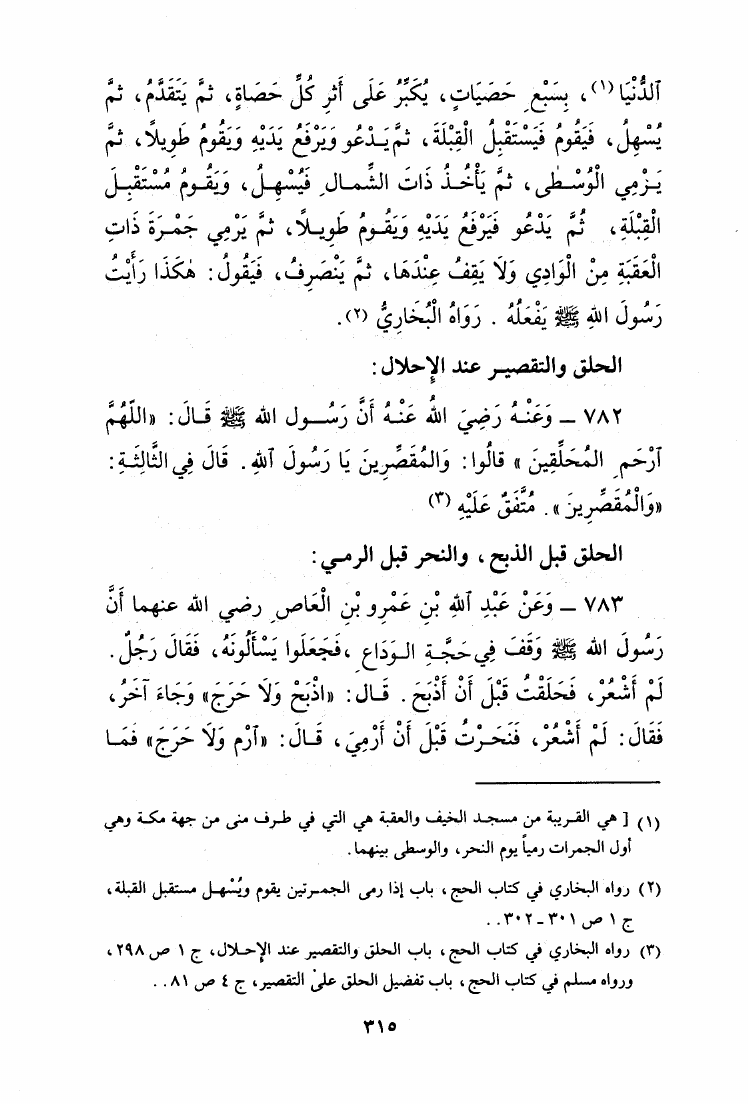 ٱلدُّنْيَا (١)، بِسَبْعِ حَصَيَاتٍ، يُكَبِّرُ عَلَى أَثَرِ كُلِّ حَصَاةٍ، ثمَّ يَتَقَدَّمُ، ثمَّ
يُسْهِلُ، فَيَقُومُ فَيَسْتَقْبِلُ الْقِبْلَةَ، ثمَّ يَدْعُو وَيَرْفَعُ يَدَيْهِ وَيَقُومُ طَوِيلاً، ثمَّ
يَرْمِي الْوُسْطى، ثمَّ يَأْخُذُ ذَاتَ الشِّمالِ فَيُسْهِلُ، وَيَقُومُ مُسْتَقْبِلَ
الْقِبْلَةِ، ثُمَّ يَدْعُو فَيَرْفَعُ يَدَيْهِ وَيَقُومُ طَوِيلاً، ثمَّ يَرْمِي جَمْرَةَ ذَاتِ
الْعَقَبَةِ مِنْ الْوَادِي وَلاَ يَقِفُ عِنْدَهَا، ثمَّ يَنْصَرِفُ، فَيَقُولُ: هٰكَذَا رَأَيْتُ
رَسُولَ اللهِ ﷺ يَفْعَلُهُ . رَوَاهُ الْبُخَارِيُّ (٢).
الحلق والتقصير عند الإحلال:
٧٨٢ ــ وَعَنْهُ رَضِيَ اللهُ عَنْهُ أَنَّ رَسُولَ الله ﷺ قَالَ: «اللّهُمَّ
ٱرْحَمِ المُحَلِّقِينَ» قالُوا: وَالمُقَصِّرِينَ يَا رَسُولَ ٱللهِ. قَالَ فِي الثَّالِثَةِ:
«وَالْمُقَصِّرِينَ». مُتَّفَقٌ عَلَيْهِ (٣)
الحلق قبل الذبح، والنحر قبل الرمي:
٧٨٣ ــ وَعَنْ عَبْدِ ٱللهِ بْنِ عَمْرِو بْنِ الْعَاصِ رضي الله عنهما أَنَّ
رَسُولَ الله ﷺ وَقَفَ فِي حَجَّةِ الوَدَاعِ ،فَجَعَلُوا يَسْأَلُونَهُ، فَقَالَ رَجُلٌ.
لَمْ أَشْعُرْ، فَحَلَقْتُ قَبْلَ أَنْ أَذْبَحَ. قَال: «اذْبَحْ وَلَا حَرَجَ» وَجَاءَ آخَرُ،
فَقَالَ: لَمْ أَشْعُرْ، فَنَحَرْتُ قَبْلَ أَنْ أَرْمِيَ، قَالَ: «ٱرْمِ وَلَا حَرَجَ» فَمَا
(١) [ هي القريبة من مسجد الخيف والعقبة هي التي في طرف منى من جهة مكة وهي
أول الجمرات رمياً يوم النحر، والوسطى بينهما.
(٢) رواه البخاري في كتاب الحج، باب إذا رمى الجمرتين يقوم ويُسْهل مستقبل القبلة،
ج ١ ص ٣٠١ ــ ٣٠٢. .
(٣) رواه البخاري في كتاب الحج، باب الحلق والتقصير عند الإحلال، ج ١ ص ٢٩٨،
ورواه مسلم في كتاب الحج، باب تفضيل الحلق علىٰ التقصير، ج ٤ ص ٨١. .
٣١٥